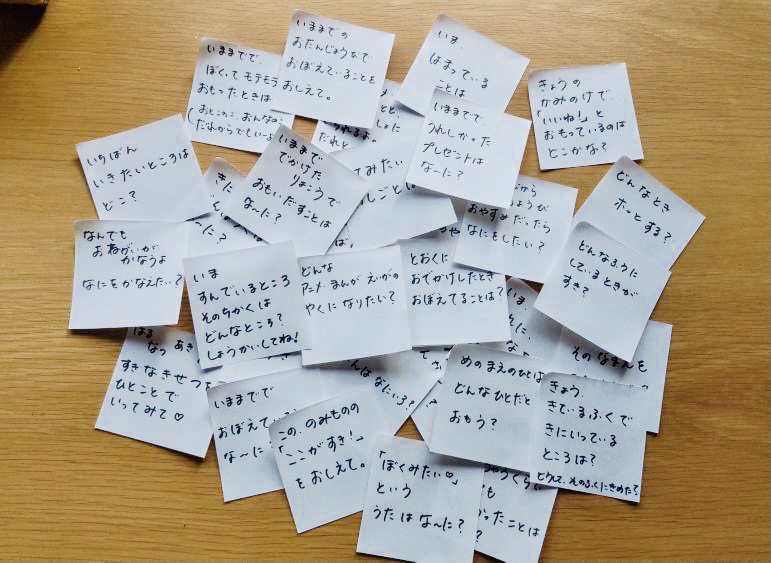 いままでの
おたんじょうびで
おぼえていることを
おしえて。
いままでで、
ぼくってモテモテ
おもったときは
(おとこのこ、おんなのこ
だれからでもいいよ
いま、
はまっている
ことは
きょうの
かみのけで、
「いいね!」と
おもっているのは
どこかな?
いままでで、
うれしかった
プレゼントは
な〜に?
いちばん
いきたいところは
どこ?
いままで
でかけた
りょこうで
おもいだすことは
な〜に?
てみたい
しごとは
どんなとき
ホッとする?
から
おやすみだったら
なにをしたい?
なんでも
おねがいが
かなうよ
なにをかなえたい?
いま
すんでいるところ
そのちかくは
どんなところ?
しょうかいしてね!
どんな
アニメ・まんが・えいがの
やくになりたい?
とおくに
おでかけしたとき
おぼえてることは?
どんなふうに
しているときが
すき?
はる
なつ あき
すきなきせつを
ひとことで
いってみて♡
いままでで
おぼえている
な〜に?
この、のみものの
「ここがすき!」
をおしえて。
なにいろ?
めのまえのひとは
どんなひとだと
おもう?
そのなまえを
きょう、
きているふくで
きにいっている
ところは?
どうして、そのふくにきめた?
「ぼくみたい♡」
という
うたはな〜に?
ったことは